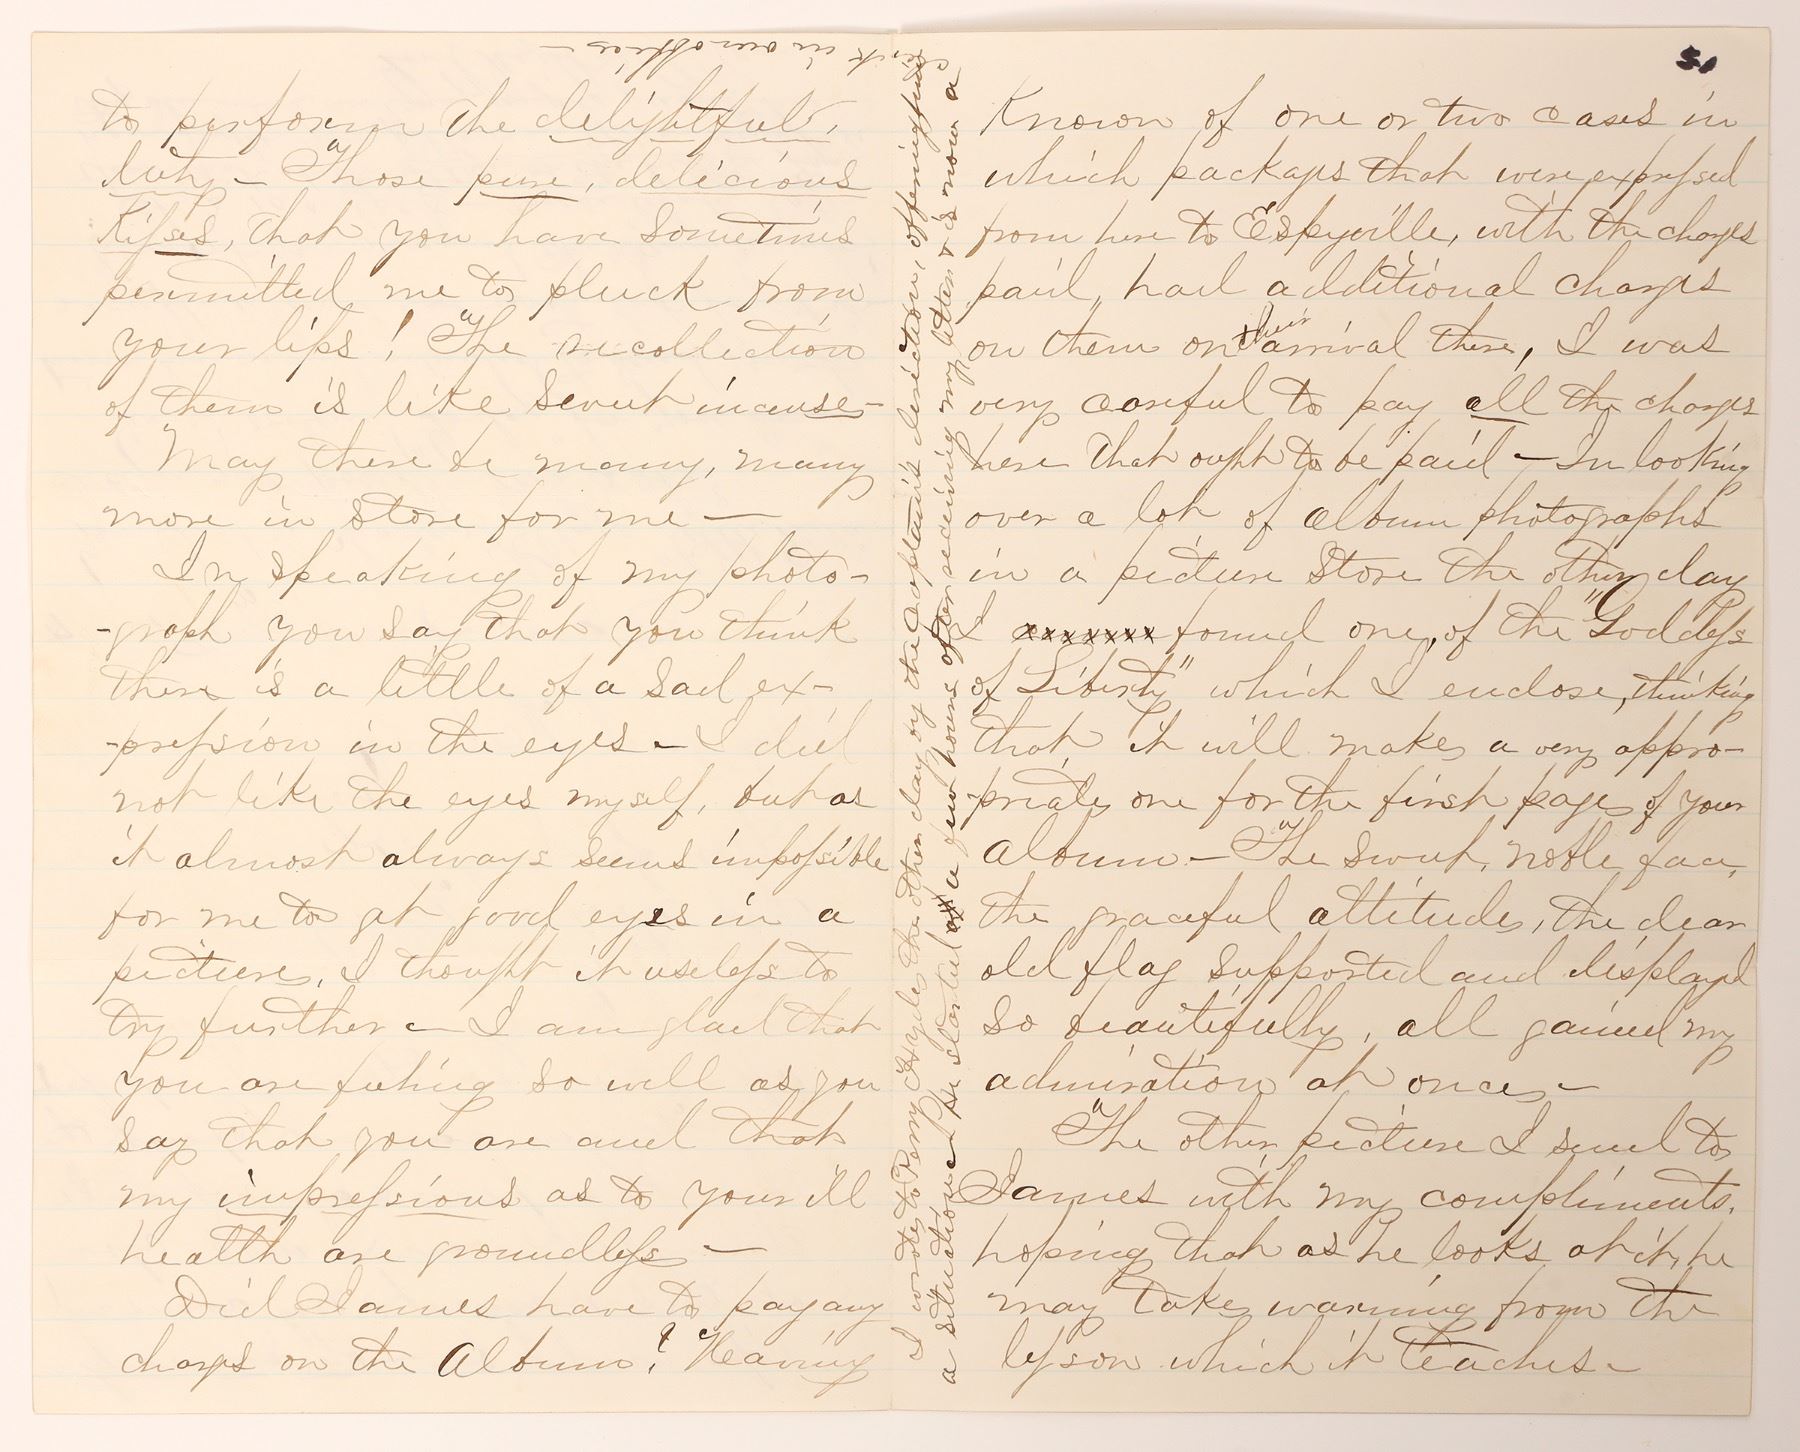 to perform the delightful
duty – Those pure, delicious
Kisses, that you have sometimes
permitted me to pluck from
your lips! The recollection
of them is like sweet incense –
May there be many, many
more in store for me —
In speaking of my photo-
-graph you say that you think
there is a little of a sad ex-
-pression in the eyes – I did
not like the eyes myself, but as
it almost always seems impossible
for me to get good eyes in a
picture, I thought it useless to
try further – I am glad that
you are feeling so well as you
say that you are and that
my impressions as to your ill
health are groundless —
Did James have to pay any
charges on the Album? Having
I wrote to Perry the other day by the Captain's direction, offering him
a situation – He started a few hours after receiving my letter & is now a
clerk in our office –
51
Known of one or two cases in
which packages that were expressed
from here to Espyville, with the charges
paid, had additional charges
on them on their arrival there, I was
very careful to pay all the charges
here that ought to be paid – In looking
over a lot of album photographs
in a picture store the other day
I found one, of the "Goddess
of Liberty" which I enclose, thinking
that it will make a very appro-
-priate one for the first page of your
Album – The sweet, noble face,
the graceful attitude, the dear
old flag supported and displayed
so beautifully, all gained my
admiration at once –
The other picture I send to
James with my compliments,
hoping that as he looks at it, he
may take warning from the
lesson which it teaches –